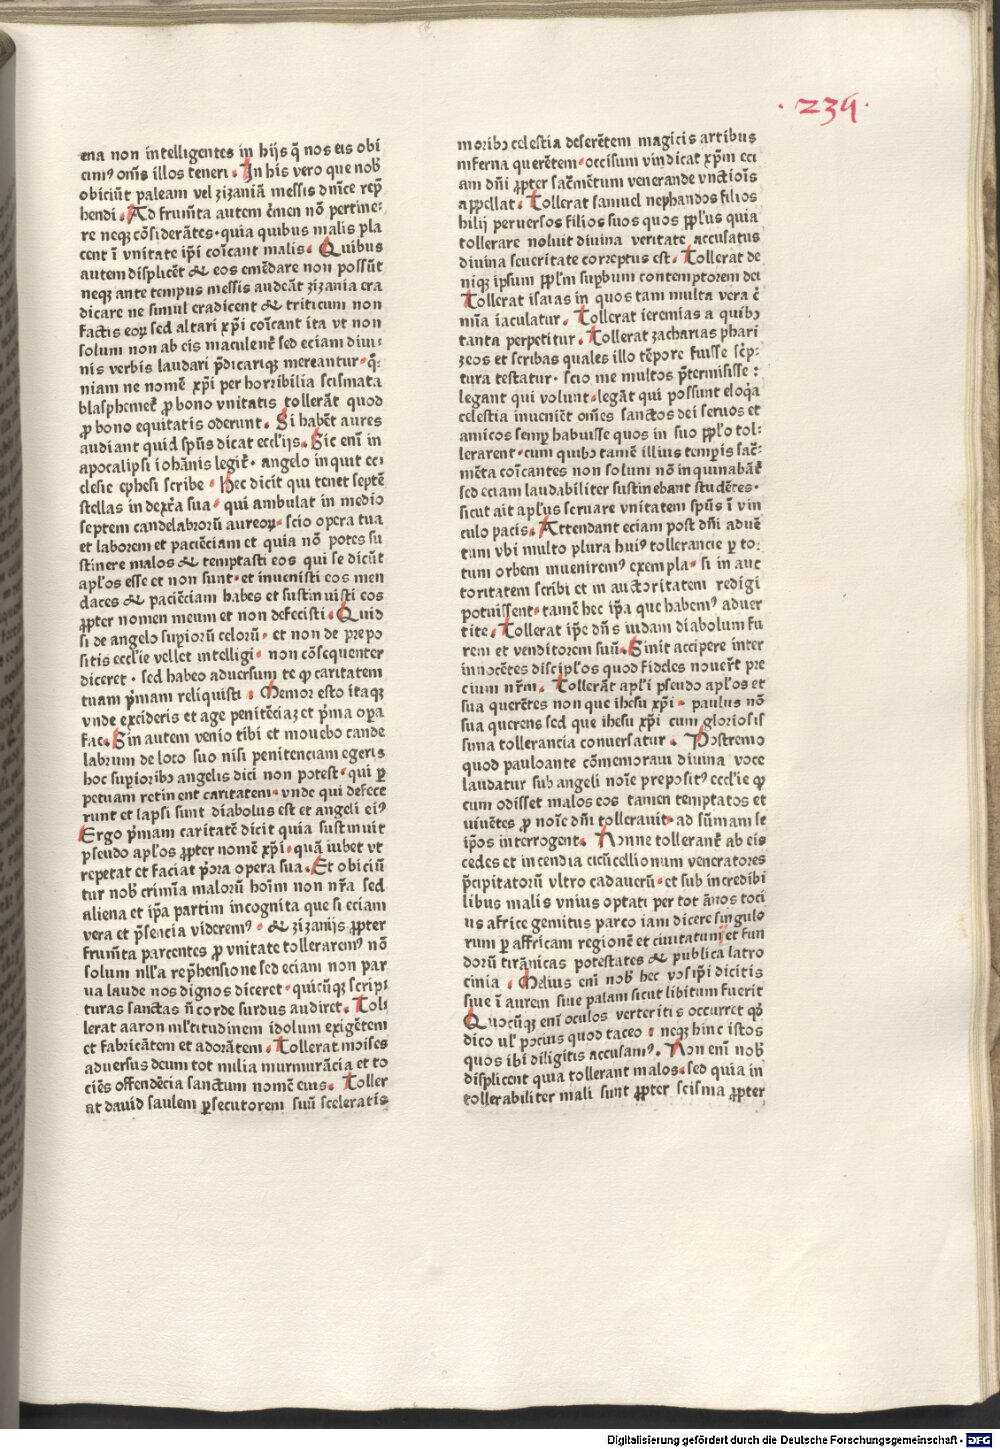 ·239·
ena non intelligentes in hijs q̄ nos eis obi
cimꝰ om̄s illos teneri. In his vero que nob̄
obiciūt paleam vel zizaniā messis dn̄ice rep̄
hendi. Ad frum̄ta autem c̄men nō pertine:
re neqꝫ cōsiderātes· quia quibus malis pla
cent ī vnitate ip̄i cōicant malis. Quibus
autem displicēt & eos emēdare non possūt
neqꝫ ante tempus messis audeāt zizania era
dicare ne simul eradicent & triticum non
factis eoꝝ sed altari xp̄i cōicant ita vt non
solum non ab eis maculent̄ sed eciam diui:
nis verbis laudari p̄dicariqꝫ mereantur· q̄:
niam ne nomē xp̄i per horribilia scismata
blasphemet̄ ꝓ bono vnitatis tollerāt quod
ꝓ bono equitatis oderunt. Si habēt aures
audiant quid sp̄us dicat eccl'ijs. Sic enī in
apocalipsi iohānis legit̄· angelo inquit ec:
clesie ephesi scribe· Hec dicit qui tenet septē
stellas in dext̄a sua· qui ambulat in medio
septem candelabrorū aureoꝝ· scio opera tua
et laborem et paciēciam et quia nō potes su
stinere malos & temptasti eos qui se dicūt
apl'os esse et non sunt· et inuenisti eos men
daces & paciēciam habes et sustinuisti eos
ꝓpter nomen meum et non defecisti. Quid
si de angelo sup̱iorū celorū· et non de prepo
sitis eccl'ie vellet intelligi· non cōsequenter
diceret· sed habeo aduersum te ꝙ caritatem
tuam p̄mam reliquisti: Memor esto itaqꝫ
vnde excideris et age penitēciaꝫ et p̄ma oꝑa
fac. Sin autem venio tibi et mouebo cande
labrum de loco suo nisi penitenciam egeris
hoc suꝑioribꝫ angelis dici non potest· qui ꝑ
petuam retinent caritatem· vnde qui defece
runt et lapsi sunt diabolus est et angeli eiꝰ
Ergo p̄mam caritatē dicit quia sustinuit
pseudo apl'os ꝓpter nomē xp̄i· quā iubet vt
repetat et faciat p̄ora opera sua. Et obiciū
tur nob̄ crimīa malorū hoīm non nr̄a sed
aliena et ip̄a partim incognita que si eciam
vera et p̄sencia videremꝰ· & zizanijs ꝓpter
frum̄ta parcentes ꝓ vnitate tolleraremꝰ nō
solum null'a rep̄hensione sed eciam non par
ua laude nos dignos diceret· quicūqꝫ scrip:
turas sanctas n̄ corde surdus audiret. Tol:
lerat aaron ml'titudinem idolum exigētem
et fabricātem et adorātem. Tollerat moises
aduersus deum tot milia murmurācia et to
ciēs offendēcia sanctum nomē eius. Toller
at dauid saulem ꝑsecutorem suū sceleratis
moribꝫ celestia deserētem magicis artibus
inferna querētem· occisum vindicat xp̄m eci
am dn̄i ꝓpter sac̄mētum venerande vnctiōis
appellat. Tollerat samuel nephandos filios
hilij peruersos filios suos quos ppl'us quia
tollerare noluit diuina veritate accusatus
diuina seueritate correptus est. Tollerat de
niqꝫ ipsum ppl'm suꝑbum contemptorem dei
Tollerat isaias in quos tam multa vera c̄
mīa iaculatur. Tollerat ieremias a quibꝫ
tanta perpetitur. Tollerat zacharias phari
zeos et scribas quales illo tēpore fuisse sc̄p:
tura testatur· scio me multos p̄termisisse:
legant qui volunt· legāt qui possunt eloq̄a
celestia inueniēt om̄es sanctos dei seruos et
amicos semꝑ habuisse quos in suo ppl'o tol:
lerarent· cum quibꝫ tamē illius tempis sac̄:
mēta cōicantes non solum nō inquinabāt̄
sed eciam laudabiliter sustinebant studētes·
sicut ait apl'us seruare vnitatem sp̄us ī vin
culo pacis. Attendant eciam post dn̄i aduē
tum vbi multo plura huiꝰ tollerancie ꝑ to:
tum orbem inueniremꝰ exempla· si in auc
toritatem scribi et in auctoritatem redigi
potuissent· tamē hec ip̄a que habemꝰ aduer
tite. Tollerat ip̄e dn̄s iudam diabolum fu
rem et venditorem suū. Sinit accipere inter
innocētes discipl'os quod fideles nouer̄t pre
cium nr̄m. Tollerāt apl'i pseudo apl'os et
sua querētes non que ihesu xp̄i· paulus nō
sua querens sed que ihesu xp̄i cum gloriosis
sima tollerancia conuersatur. Postremo
quod pauloante cōmemoraui diuina voce
laudatur sub angeli noīe prepositꝰ eccl'ie ꝙ
cum odisset malos eos tamen temptatos et
iuuētes ꝓ noīe dn̄i tollerauit· ad sūmam se
ip̄os interrogent. Nonne tollerant̄ ab eis
cedes et incendia cicūcellionum veneratores
p̄cipitatorū vltro cadauerū· et sub incredibi
libus malis vnius optati per tot ānos toci
us africe gemitus parco iam dicere singulo
rum ꝑ affricam regionē et ciuitatum et fun
dorū tirānicas potestates & publica latro
cinia. Melius enī nob̄ hec vos ip̄i dicitis
siue ī aurem siue palam sicut libitum fuerit
Quocūqꝫ enī oculos verteritis occurret qd̄
dico ul' pocius quod taceo: neqꝫ hinc istos
quos ibi diligitis accusamꝰ. Non enī nob̄
displicent quia tollerant malos· sed quia in
tollerabiliter mali sunt ꝓpter scisma ꝓpter
Digitalisierung gefördert durch die Deutsche Forschungsgemeinschaft - DFG